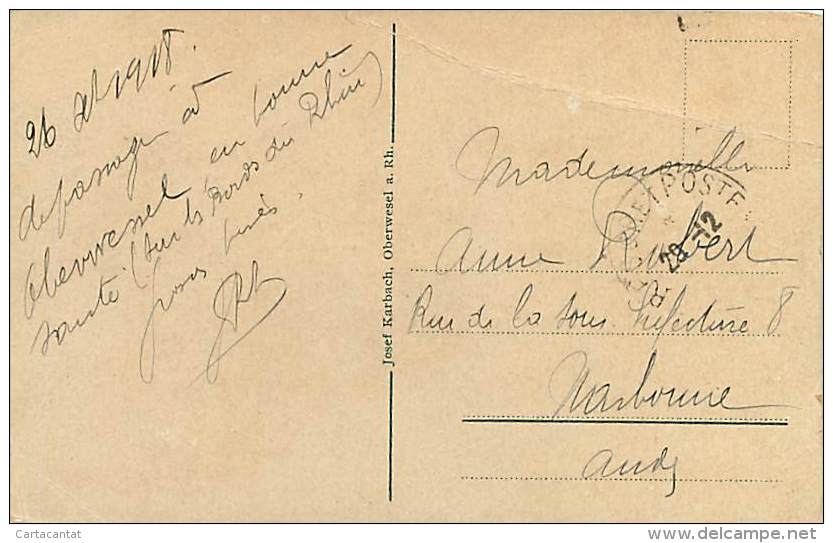 26 Xbre 1918.
de passage à
Oberwesel en bonne
santé (sur les Bords du Rhin)
Gros bisés.
Josef Karbach, Oberwesel a. Rh.
Mademoiselle
Anne Robert
Rue de la Sous Préfecture 8
Narbonne
Aude
POSTE
28 -12
Cartacantat
www.delcampe.net